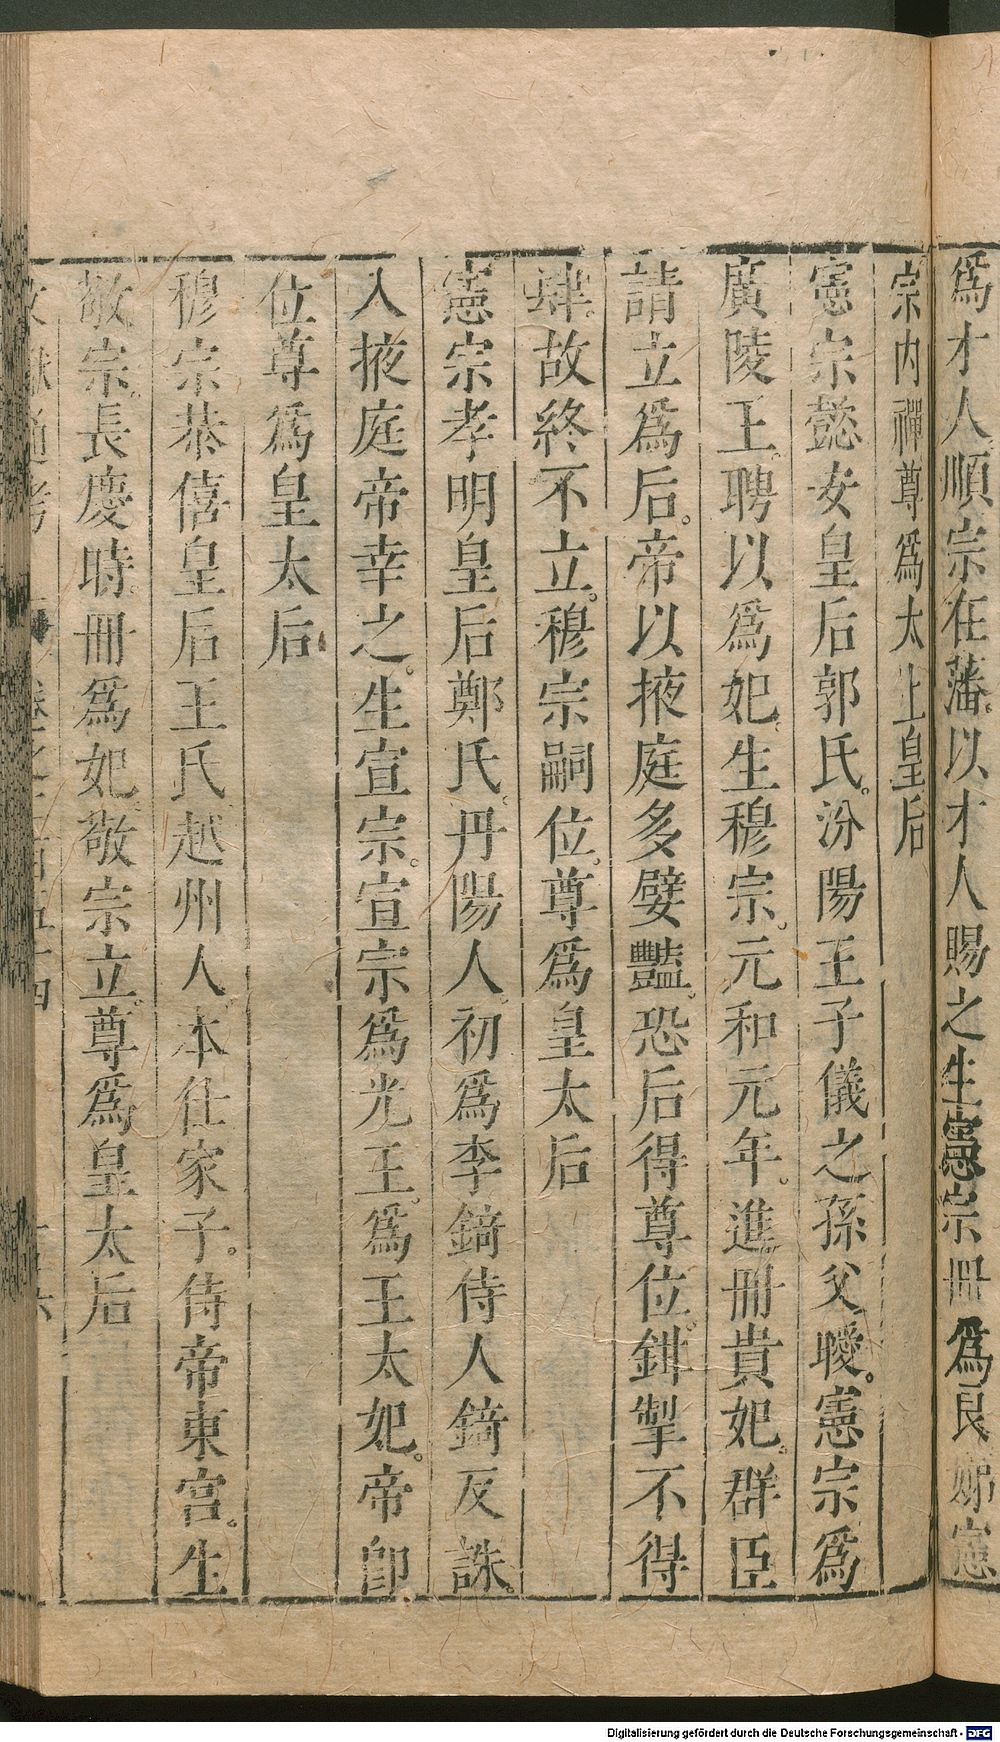 爲才人順宗在藩以才人賜之生憲宗冊爲良娣憲
宗内禪尊爲太上皇后
憲宗懿安皇后郭氏汾陽王子儀之孫父曖憲宗爲
廣陵王聘以爲妃生穆宗元和元年進冊貴妃群臣
請立爲后帝以掖庭多嬖豔恐后得尊位鉗掣不得
肆故終不立穆宗嗣位尊爲皇太后
憲宗孝明皇后鄭氏丹陽人初爲李錡侍人錡反誅
入掖庭帝幸之生宣宗宣宗爲光王爲王太妃帝卽
位尊爲皇太后
穆宗恭僖皇后王氏越州人本仕家子侍帝東宮生
敬宗長慶時冊爲妃敬宗立尊爲皇太后
Digitalisierung gefördert durch die Deutsche Forschungsgemeinschaft - DFG